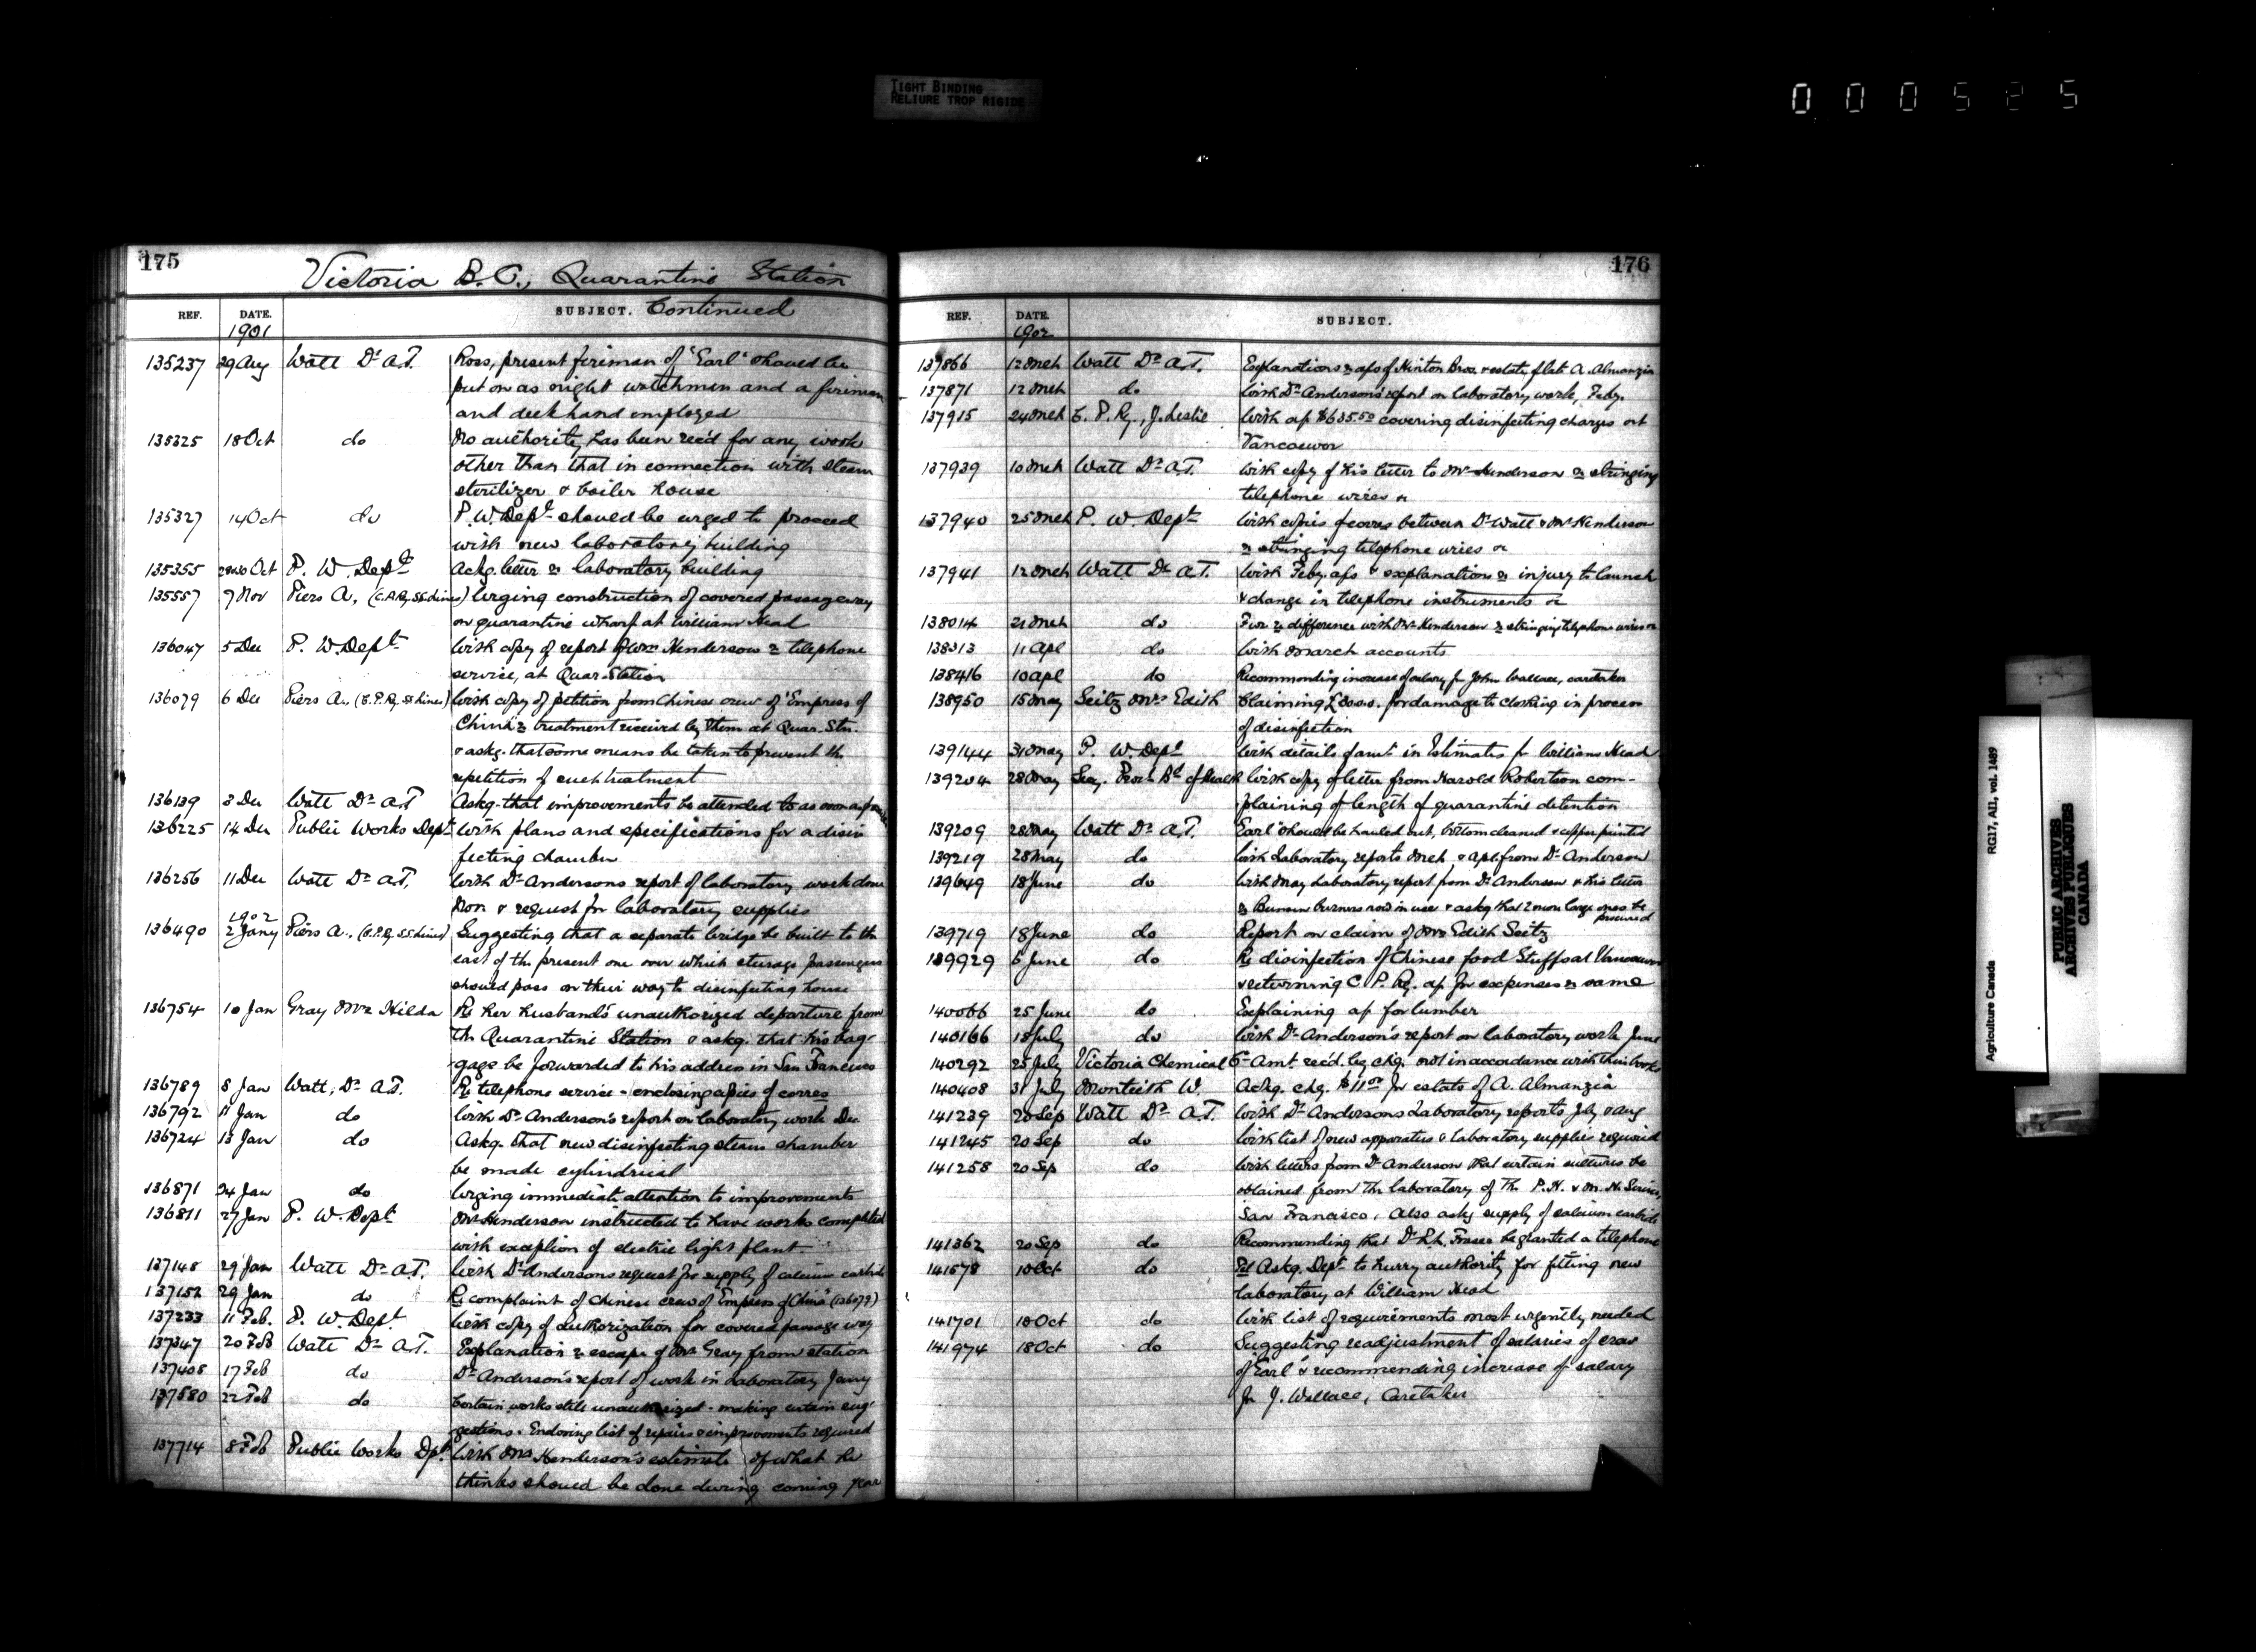 TIGHT BINDING
RELIURE TROP RIGIDE
000525
175
Victoria B.C., Quarantine Station
REF. DATE. SUBJECT. Continued
1901
135237 29 Aug Watt Dr A.T. Ross, present fireman of "Earl" should be
put on as night watchman and a fireman
and deck hand employed
135325 18 Oct do No authority has been rec'd for any work
other than that in connection with steam
sterilizer & boiler house
135327 14 Oct do P.W. Dept should be urged to proceed
with new laboratory building
135355 Oct P. W. Dept Ackg. letter re laboratory building
135557 7 Nov Piers A, (C.P.Ry S.S. Lines) Urging construction of covered passageway
on quarantine wharf at William Head
136047 5 Dec P. W. Dept With copy of report of Wm Henderson re telephone
service, at Quar. Station
136079 6 Dec Piers A. (C.P.Ry. SS. Lines) With copy of petition from Chinese crew of "Empress of
China" re treatment received by them at Quar. Stn.
& askg. that some means be taken to prevent the
repetition of such treatment
136139 3 Dec Watt Dr A.T Askg. that improvements be attended to as soon as
136225 14 Dec Public Works Dept With plans and specifications for a disin
fecting chamber
136256 11 Dec Watt Dr A.T. With Dr Andersons report of laboratory work done
Nov & request for laboratory supplies
1902
136490 2 Jany Piers A., (C.P.Ry S.S. Lines) Suggesting that a separate bridge be built to the
east of the present one over which steerage passengers
should pass on their way to disinfecting house
136754 10 Jan Gray Mrs Hilda Re her husband's unauthorized departure from
the Quarantine Station & askg. that his bag-
gage be forwarded to his address in San Francisco
136789 8 Jan Watt, Dr A.T. Re telephone service - enclosing copies of corres
136792 11 Jan do With Dr Anderson's report on laboratory work Dec
136724 13 Jan do Askg. that new disinfecting steam chamber
be made cylindrical
136871 24 Jan do Urging immediate attention to improvements
136811 27 Jan P. W. Dept Mr Henderson instructed to have works completed
with exception of electric light plant
137148 29 Jan Watt Dr A.T. With Dr Andersons request for supply of calcium carbide
137152 29 Jan do Re complaint of Chinese crew of "Empress of China" (136079)
137233 11 Feb. P. W. Dept With copy of authorization for covered passage way
137347 20 Feb Watt Dr A.T. Explanation re escape of Mr Gray from station
137408 17 Feb do Dr Anderson's report of work in Laboratory Jany
137580 22 Feb do Certain works still unauthorized - making certain sug-
gestions. Enclosing list of repairs & improvements required
137714 8 Feb Public Works Dpt. With Mr Henderson's estimate of what he
thinks should be done during coming year
176
REF. DATE. SUBJECT.
1902
137866 12 Mch Watt Dr A.T. Explanations re a/cs of Hinton Bros. & estate of late A. Almanzia
137871 12 Mch do With Dr Anderson's report on laboratory work, Feby.
137915 24 Mch C. P. Ry., J. Leslie With a/c $635.50 covering disinfecting charges at
Vancouver
137939 10 Mch Watt Dr A.T. With copy of his letter to Mr Henderson re stringing
telephone wires
137940 25 Mch P. W. Dept With copies of corres between Dr Watt & Mr Henderson
re stringing telephone wires
137941 12 Mch Watt Dr A.T. With Feby. a/cs & explanations re injury to launch
& change in telephone instruments
138014 21 Mch do re difference with Mr Henderson re stringing telephone wires
138313 11 Apl do With March accounts
138416 10 Apl do Recommending increase of salary for John Wallace, caretaker
138950 15 May Seitz Mrs Edith Claiming for damage to clothing in process
of disinfection
139144 31 May P. W. Dept With details of amt in Estimates for William Head
139204 28 May Sec. Provl Bd of Health With copy of letter from Harold Robertson com-
plaining of length of quarantine detention
139209 28 May Watt Dr A.T. "Earl" should be hauled out, bottom cleaned & copper painted
139219 28 May do With Laboratory reports Mch & Apl. from Dr Anderson
139649 18 June do With May Laboratory report from Dr Anderson & his letter
re Bunsen burners now in use & askg that 2 more large ones be
procured
139719 18 June do Report on claim of Mrs Edith Seitz
139929 6 June do Re disinfection of Chinese food Stuffs at Vancouver
& returning C. P. Ry. a/c for expenses re same
140066 25 June do Explaining a/c for lumber
140166 18 July do With Dr Anderson's report on laboratory work June
140292 25 July Victoria Chemical Co Amt. rec'd. by chq. not in accordance with their books
140408 31 July Monteith W. Ackg. chq. $11.00 for estate of A. Almanzia
141239 20 Sep Watt Dr A.T. With Dr Andersons Laboratory reports July & Aug
141245 20 Sep do With list of new apparatus & laboratory supplies required
141258 20 Sep do With letters from Dr Anderson that certain cultures be
obtained from the laboratory of the P.H. & M.H. Service,
San Francisco. Also askg supply of calcium carbide
141362 20 Sep do Recommending that Dr R.L. Fraser be granted a telephone
141578 10 Oct do Tel Askg. Dept. to hurry authority for fitting new
laboratory at William Head
141701 10 Oct do With list of requirements most urgently needed
141974 18 Oct do Suggesting readjustment of salaries of crew
of "Earl" & recommending increase of salary
for J. Wallace, Caretaker
Agriculture Canada RG17, AII, vol. 1489
PUBLIC ARCHIVES
ARCHIVES PUBLIQUES
CANADA